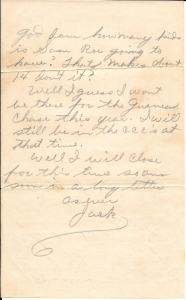 god Jam how many kids
is Sam Roe going to
have? That makes about
14 don't it?
Well I guess I won't
be there for the
Chase this year. I will
still be in the CCC's at
that time.
Well I will close
for this time so ans
son in a big letter
as ever
Jack